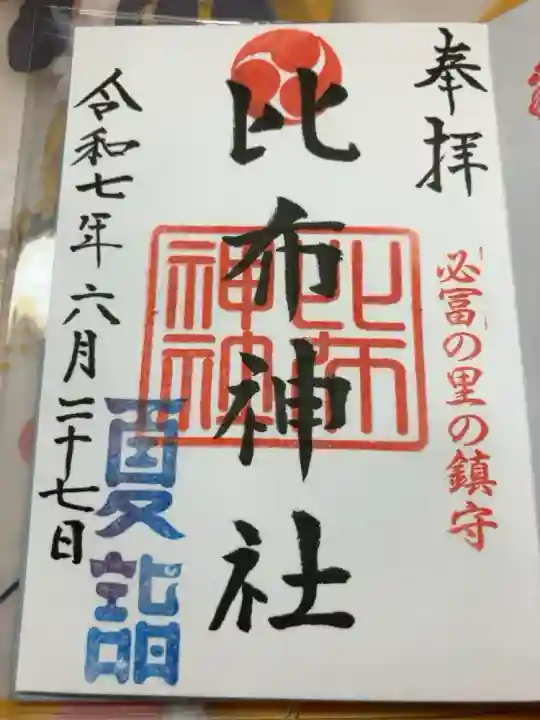 奉拝
必冨の里の鎮守
比布神社
比布
神社
夏詣
令和七年六月二十七日